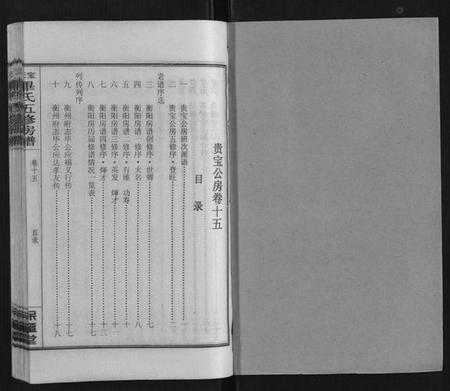 贵宝公房卷十五
目录
一 贵宝公房班次派语……一
二 贵宝公房五修序·登旺……二
老谱序选
三 衡阳房谱创修序·世卿……七
四 衡阳房谱二修序·大名……八
五 衡阳房谱二修序·有维 功寿……十
六 衡阳房谱三修序·英发 辉才……十一
七 衡阳房谱四修序·辉才……十三
八 衡阳房历届修谱情况一览表……十七
列传列序
九 衡州府志毕公应福义行传……十七
十 衡州府志毕公应达孝友传……十八
宝
毕氏五修房谱
卷十五
目录